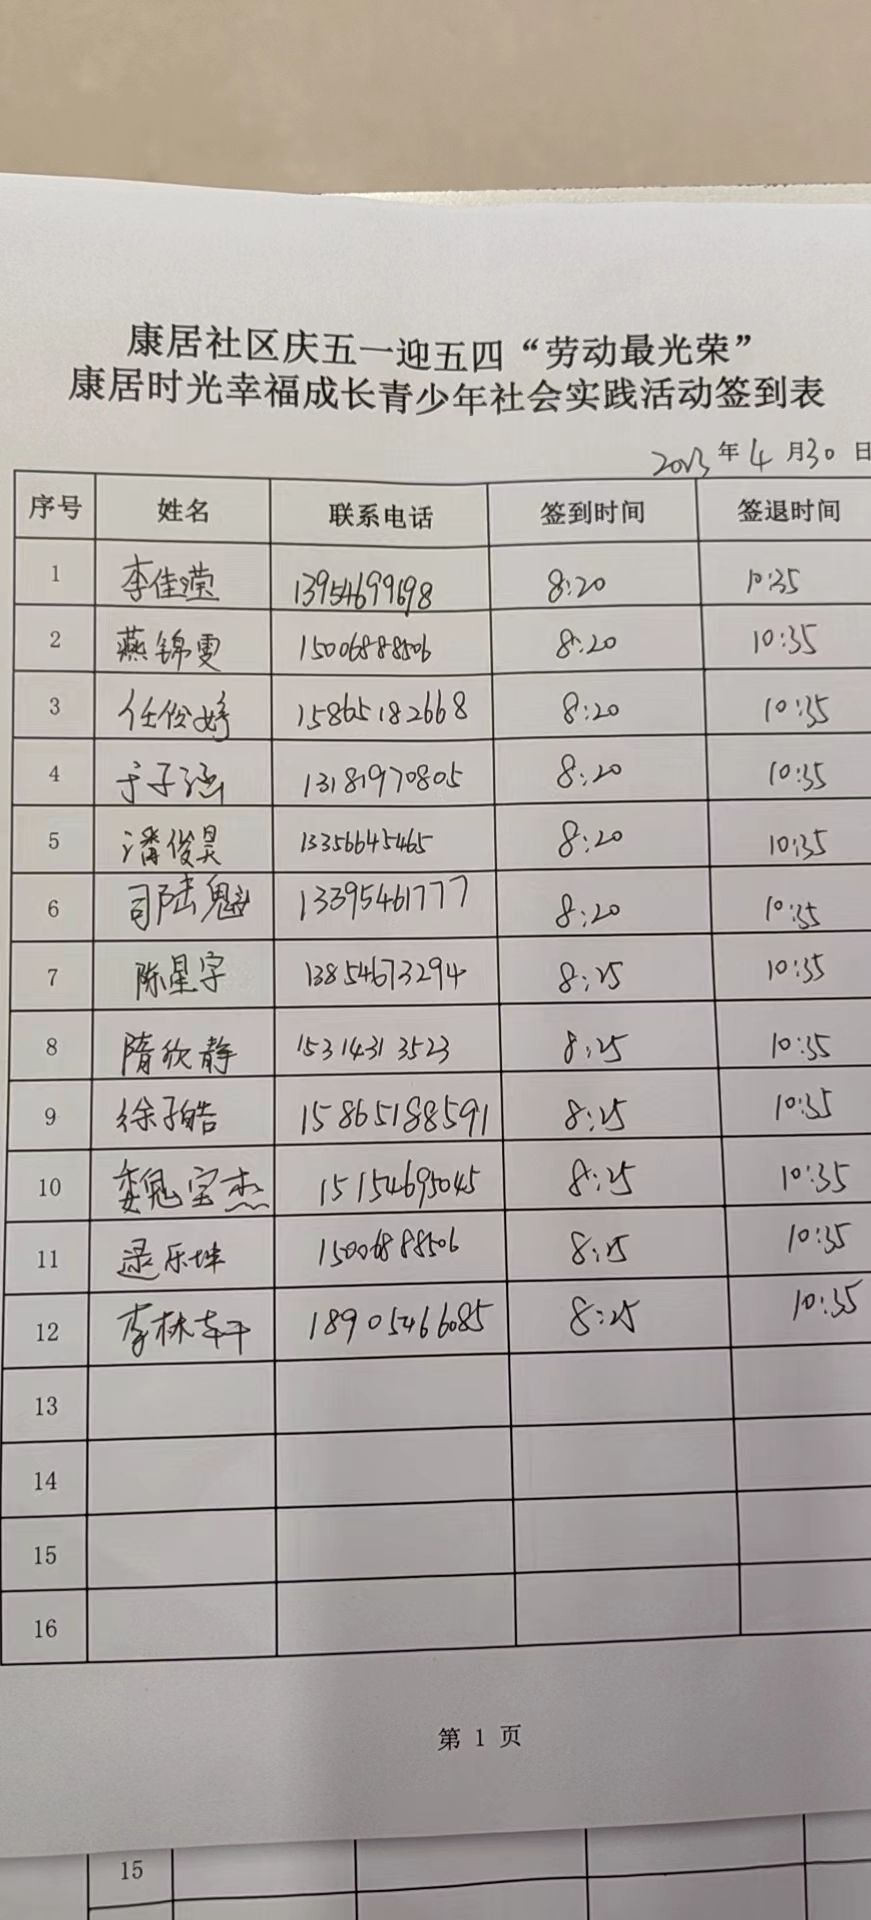 康居社区庆五一迎五四“劳动最光荣”
康居时光幸福成长青少年社会实践活动签到表
2023年4月30日
序号 姓名 联系电话 签到时间 签退时间
1 李佳滢 13954699698 8:20 10:35
2 燕锦雯 15006888506 8:20 10:35
3 任俊婷 15865182668 8:20 10:35
4 于子涵 13181970805 8:20 10:35
5 潘俊昊 13356645465 8:20 10:35
6 司陆魁 13395461777 8:20 10:35
7 陈星宇 13854673294 8:25 10:35
8 隋欣静 15314313523 8:25 10:35
9 徐子皓 15865188591 8:25 10:35
10 魏宝杰 15154695045 8:25 10:35
11 乐坤 15006888506 8:25 10:35
12 李林轩 18905466085 8:25 10:35
13
14
15
16
第 1 页
15